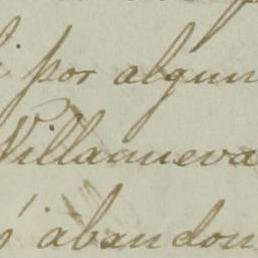 por algun
Villanueva
abandon